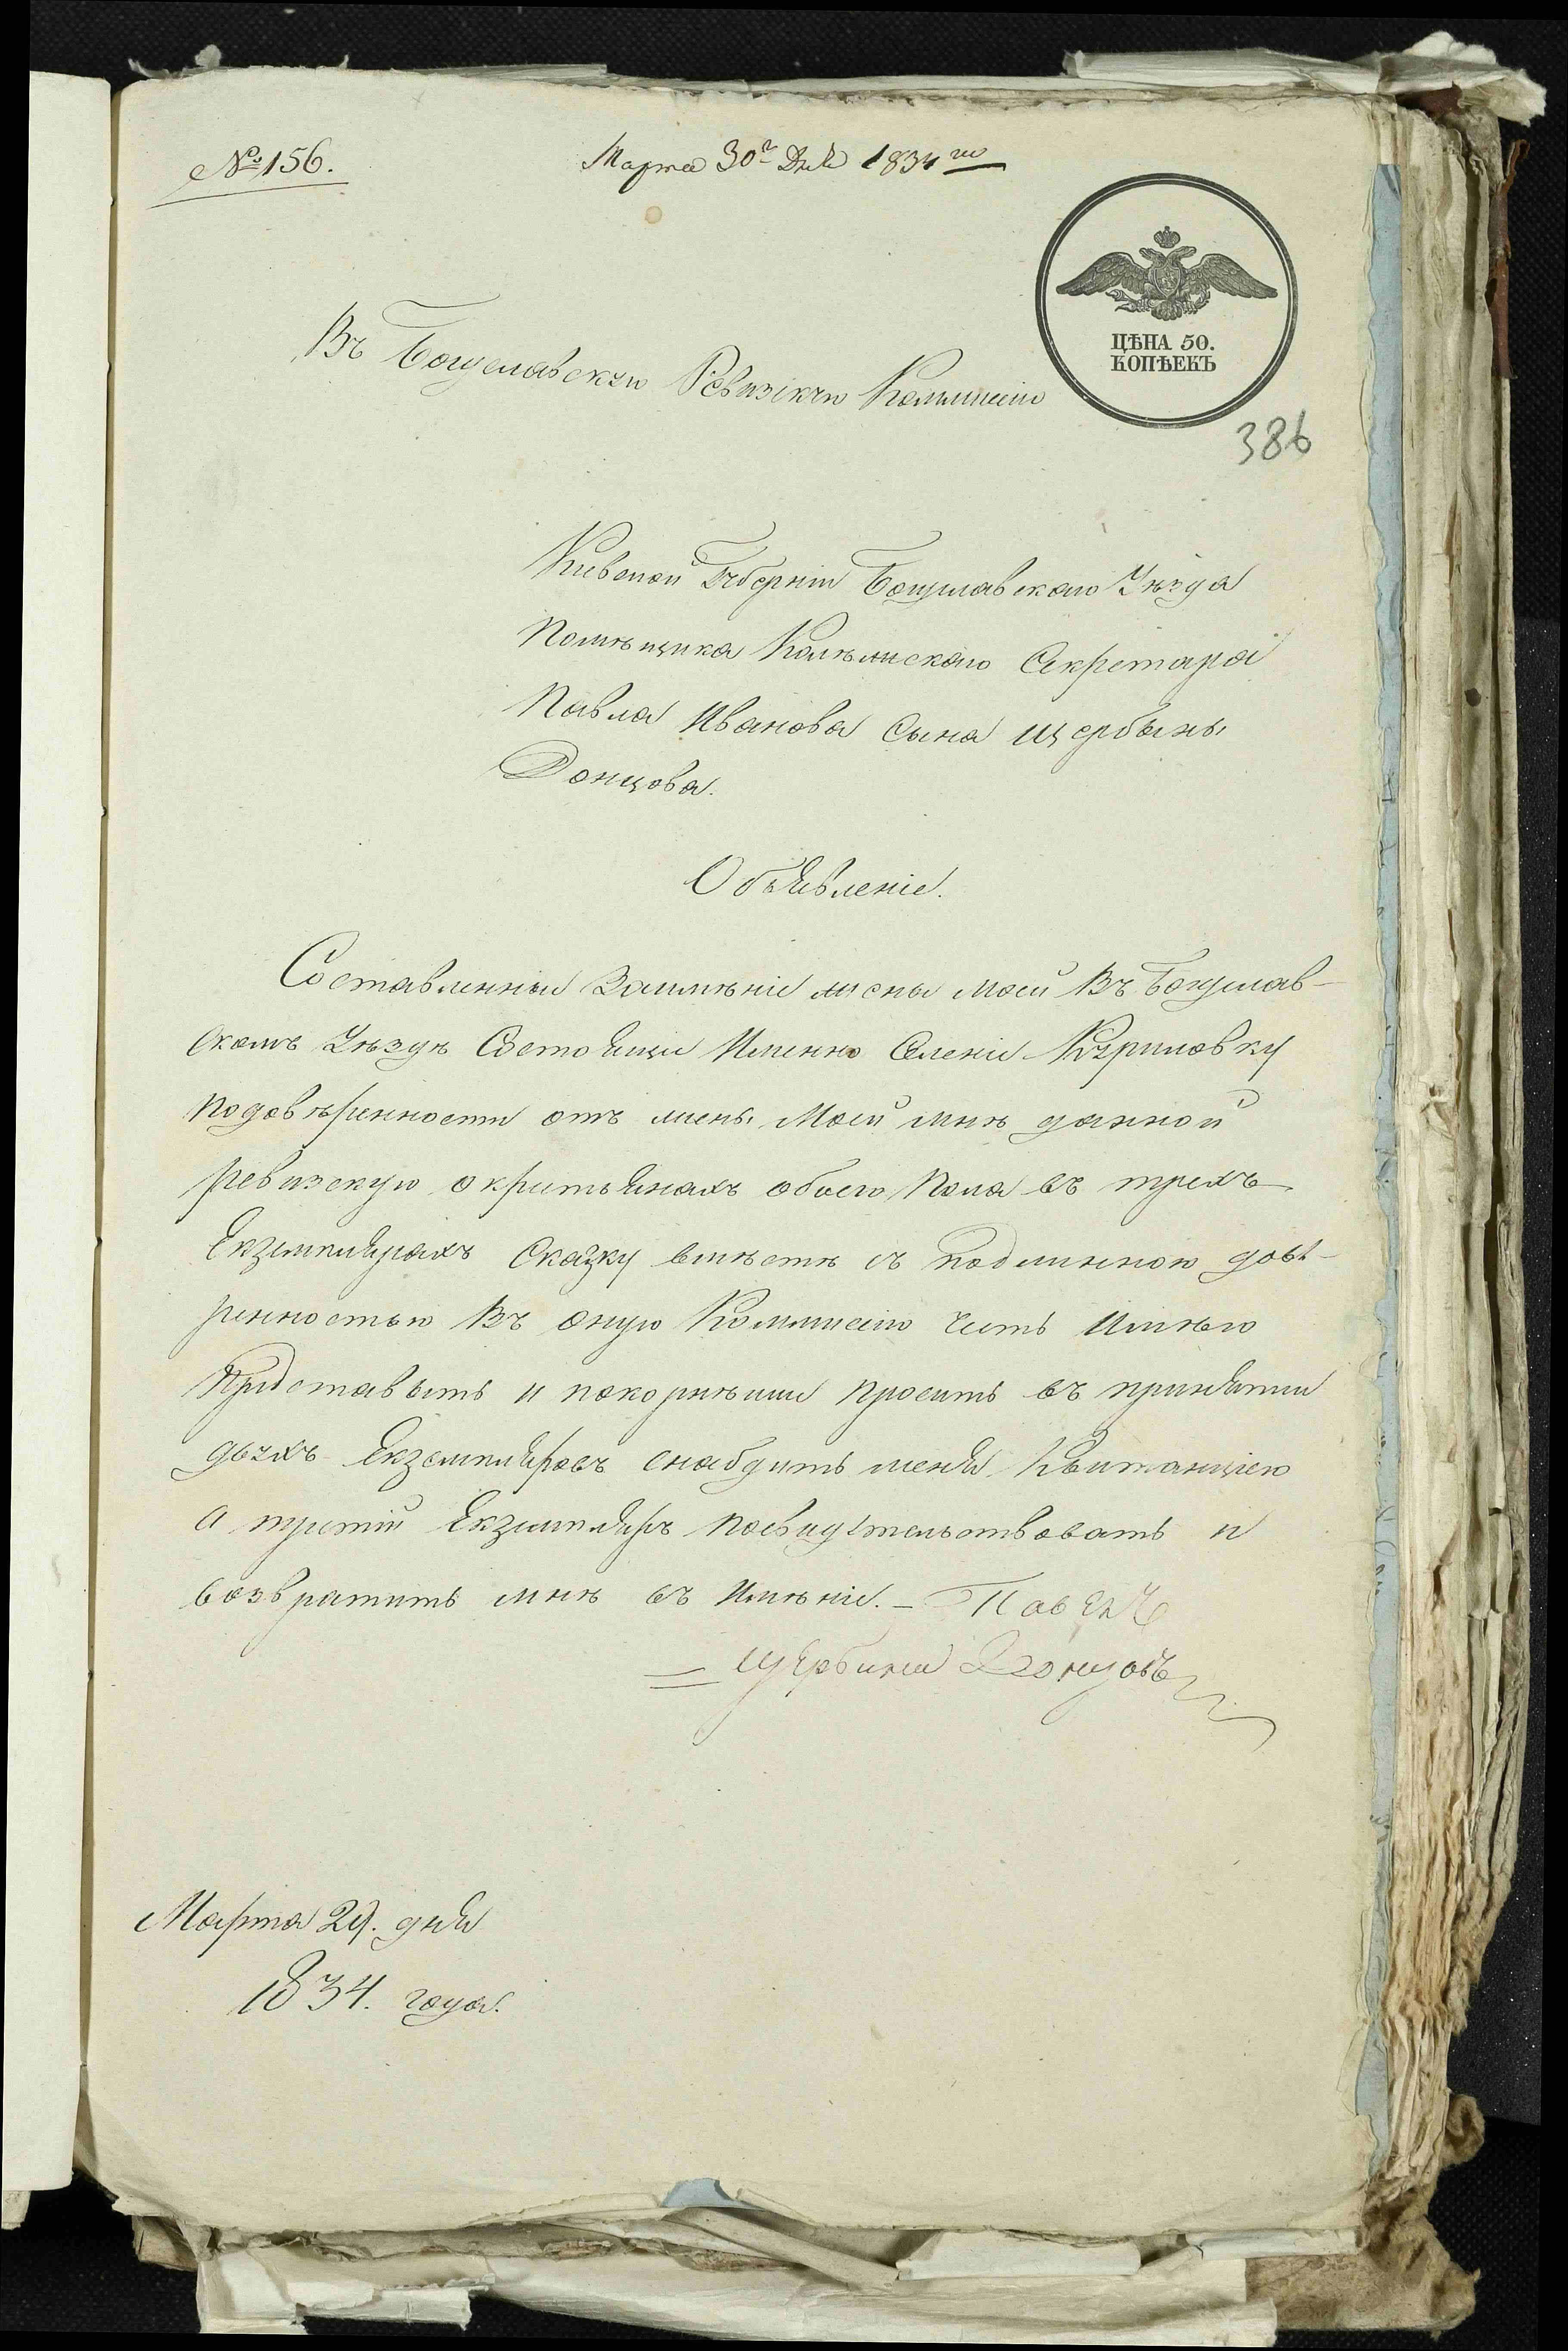 № 156.
Марта 30го Дня 1834го
ЦѢНА 50.
КОПѢЕКЪ
386
Въ Богуславскую Ревизскую Коммисiю
Киевской Губернiи Богуславскаго Уѣзда
Помѣщика Колѣжскаго Секретаря
Павла Иванова Сына Щербины
Донцова.
Объявленiе.
Составленныя жены моей Въ Богуслав-
скомъ Уѣздѣ Состоящи Именно Селенiе Куриловку
подовѣренности отъ жены Моей мнѣ данной
ревизскую окрестьянахъ обоего Пола въ трехъ
Екземплярахъ Сказку вмѣстѣ съ подлинною дове-
ренностью Въ оную Коммисiю Честь Имѣю
Представить и покорнѣйше просить въ принятiи
двухъ Екземпляровъ снабдить меня Квитанцiею
а третiй Екземпляръ посвидетельствовать и
возвратить мнѣ въ Имѣнiе. - Павелъ
= Щербина Донцовъ
Марта 29. дня
1834. года.